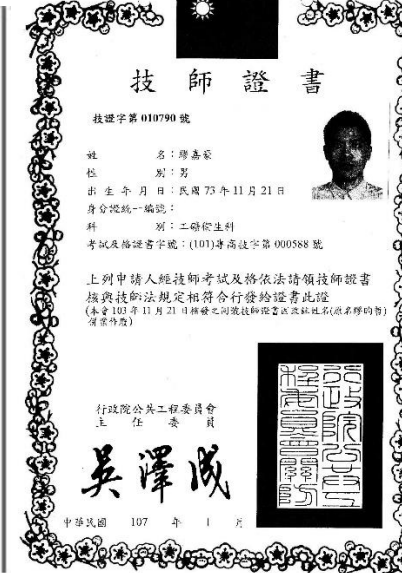 技師證書
技證字第 010790 號
姓名：繆嘉豪
性別：男
出生年月日：民國 73 年 11 月 21 日
身分證統一編號：
科別：工礦衛生科
考試及格證書字號：(101)專高技字第 000588 號
上列申請人經技師考試及格依法請領技師證書
核與技師法規定相符合行發給證書此證
(本會 103 年 11 月 21 日核發之同號技師證書因改姓名(原名繆昀哲)
併案作廢)
行政院公共工程委員會
主任委員
吳澤成
行政院公共工程委員會關防
中華民國 107 年 1 月